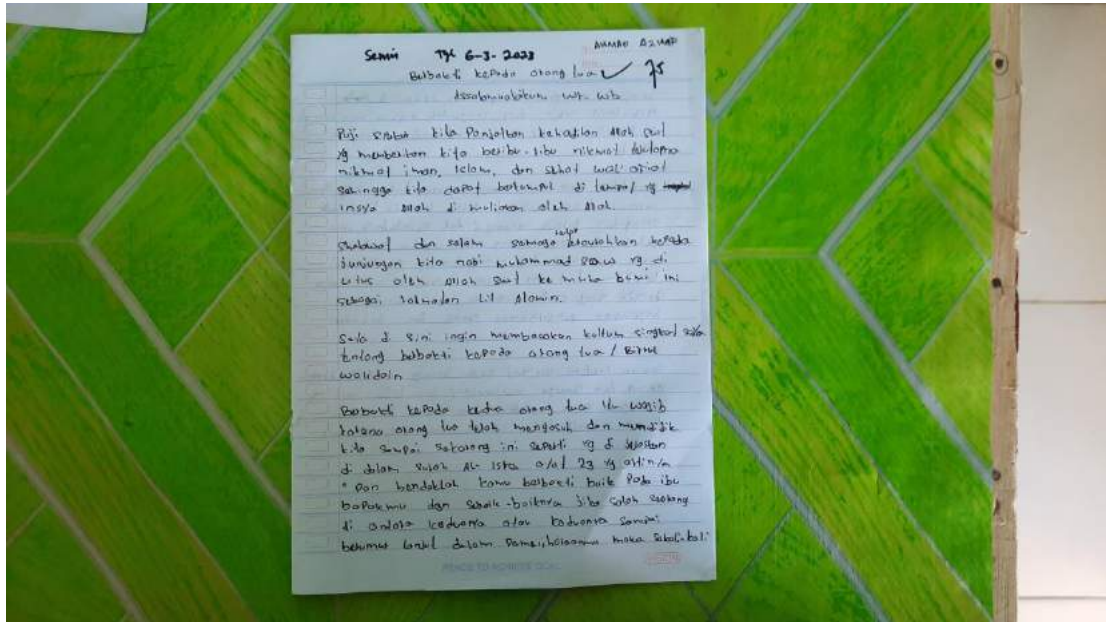 Senin Tgl 6-3-2023
AHMAD AZHAR
Berbakti kepada orang tua 75
Assalamualaikum wr. wb
Puji kita Panjatkan kehadiran Allah swt
yg memberikan kita beribu-ribu nikmat
nikmat iman, Islam, dan sehat wal afiat
sehingga kita dapat berkumpul di tempat yg
insya Allah di muliakan oleh Allah.
Shalawat dan salam semoga tetap tercurahkan kepada
junjungan kita nabi muhammad saw yg di
utus oleh Allah swt ke muka bumi ini
sebagai rahmatan lil Alamin.
Saya di sini ingin membacakan kultum singkat saya
tentang berbakti kepada orang tua / Birrul
walidain
Berbakti kepada kedua orang tua itu wajib
karena orang tua telah mengasuh dan mendidik
kita sampai sekarang ini seperti yg di jelaskan
di dalam surah AL-Isra ayat 23 yg artinya
" Dan hendaklah kamu berbakti baik Pada ibu
bapakmu dan sebaik-baiknya jika salah seorang
di antara keduanya atau keduanya sampai
berumur lanjut dalam maka sekali-kali